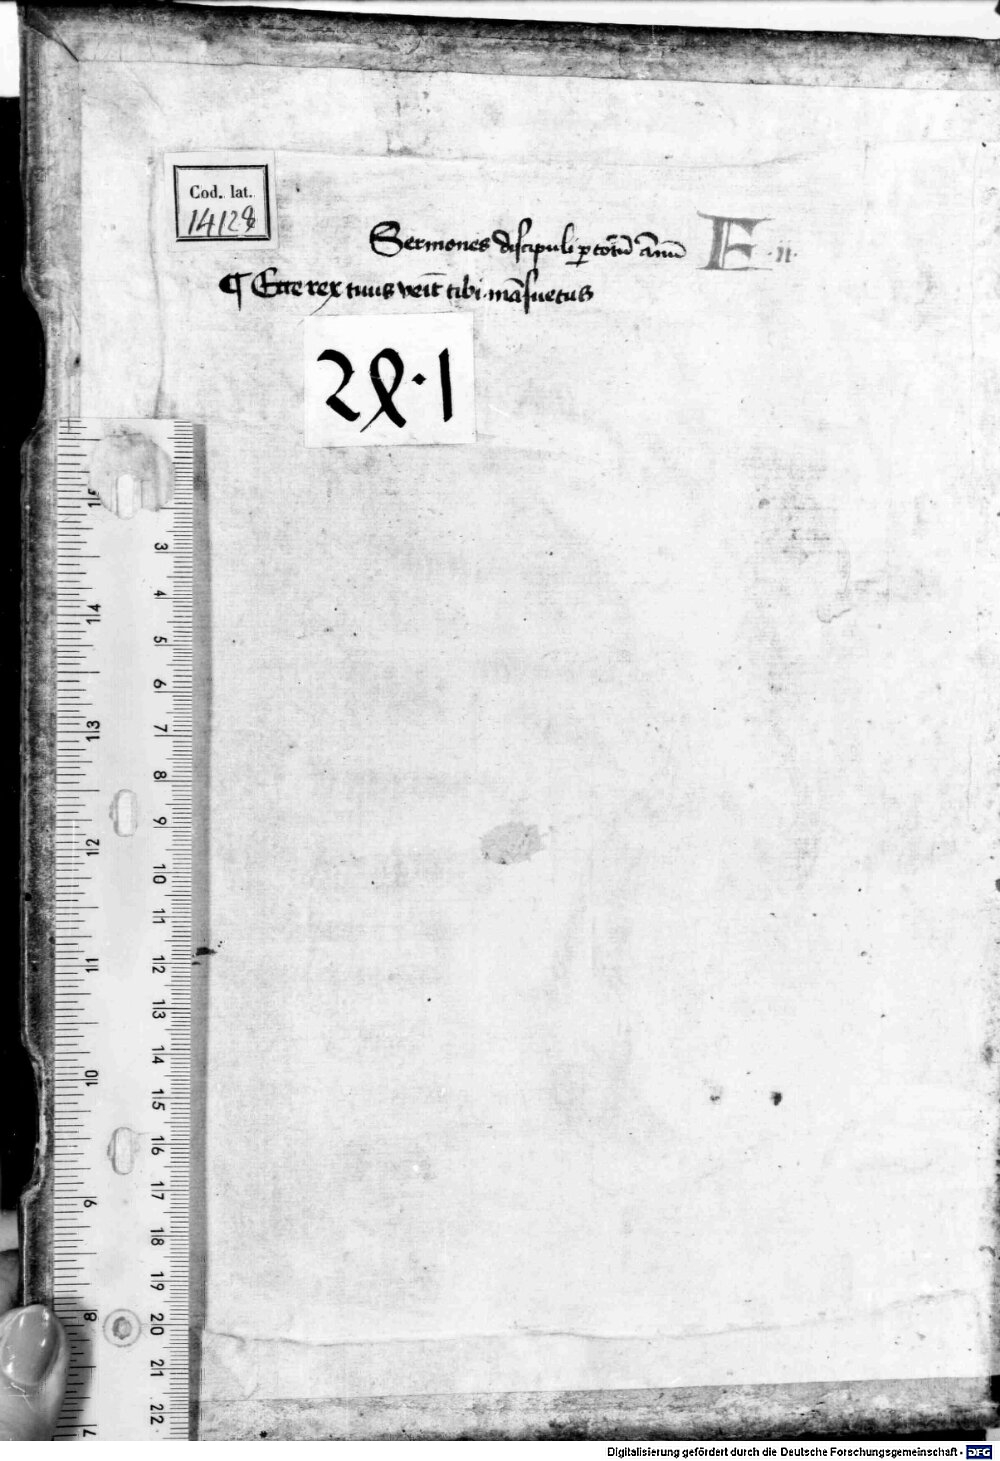 Cod. lat.
14128
Sermones discipuli p totū ānū E · II ·
¶ Ecce rex tuus veīt tibi māsuetus
2 8 · 1
15
14
13
12
11
10
9
8
7
3
4
5
6
7
8
9
10
11
12
13
14
15
16
17
18
19
20
21
22
Digitalisierung gefördert durch die Deutsche Forschungsgemeinschaft - DFG